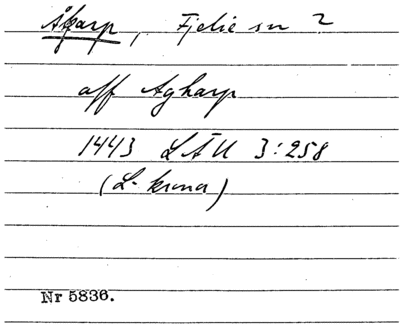 Åkarp, Fjelie sn 2
aff Agharp
1443 LÄU 3:258
(L. kronor)
Nr 5836.